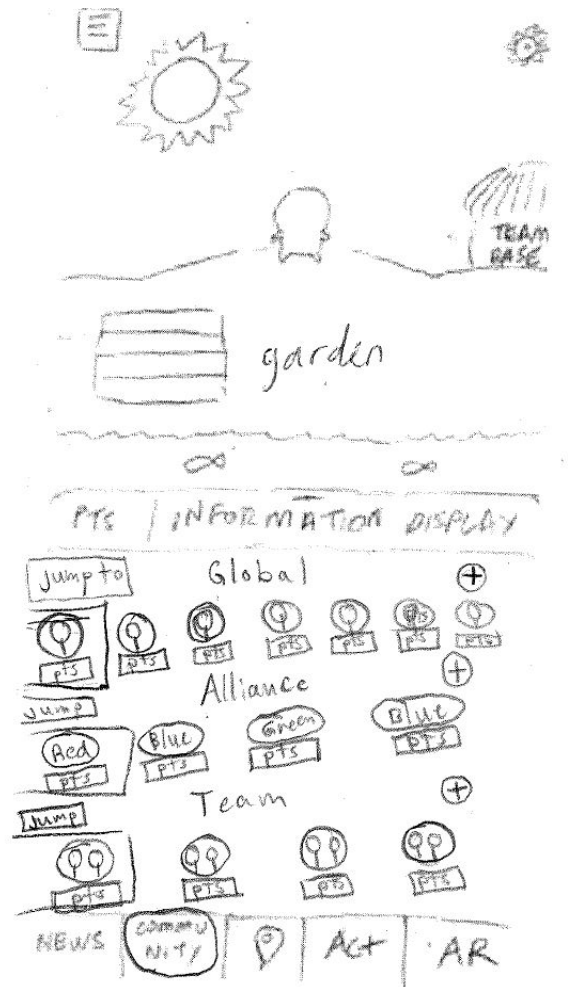 TEAM
BASE
garden
PTS | INFORMATION DISPLAY
Jump to Global +
pts pts pts pts pts pts pts
Alliance +
Jump
Red Blue Green Blue
pts pts pts pts
Team +
Jump
pts pts pts pts
NEWS COMMU Act AR
NITY